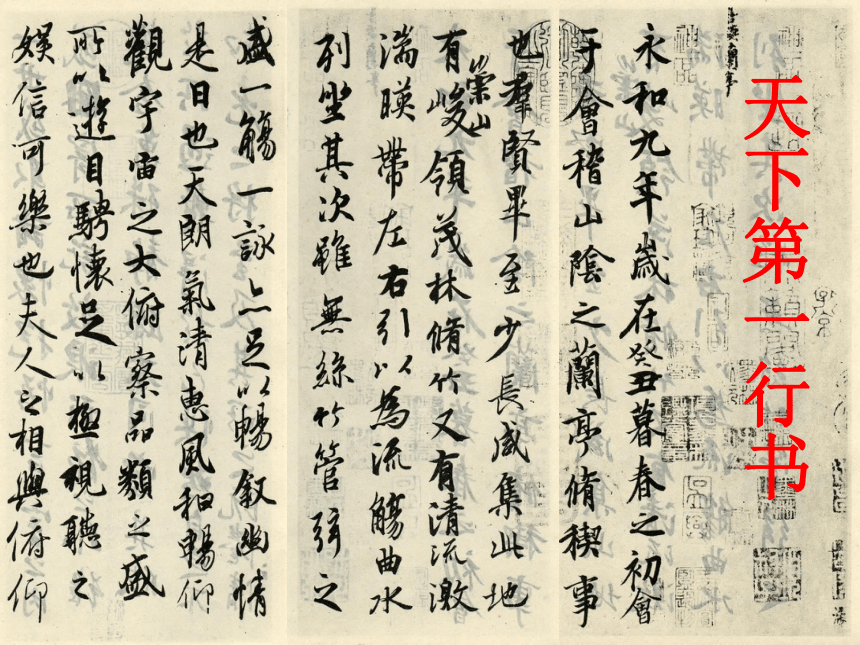 天下第一行书
永和九年歲在癸丑暮春之初會
于會稽山陰之蘭亭脩稧事
也羣賢畢至少長咸集此地
有崇山峻領茂林脩竹又有清流激
湍暎帶左右引以為流觴曲水
列坐其次雖無絲竹管弦之
盛一觴一詠亦足以暢叙幽情
是日也天朗氣清惠風和暢仰
觀宇宙之大俯察品類之盛
所以遊目騁懷足以極視聽之
娛信可樂也夫人之相與俯仰